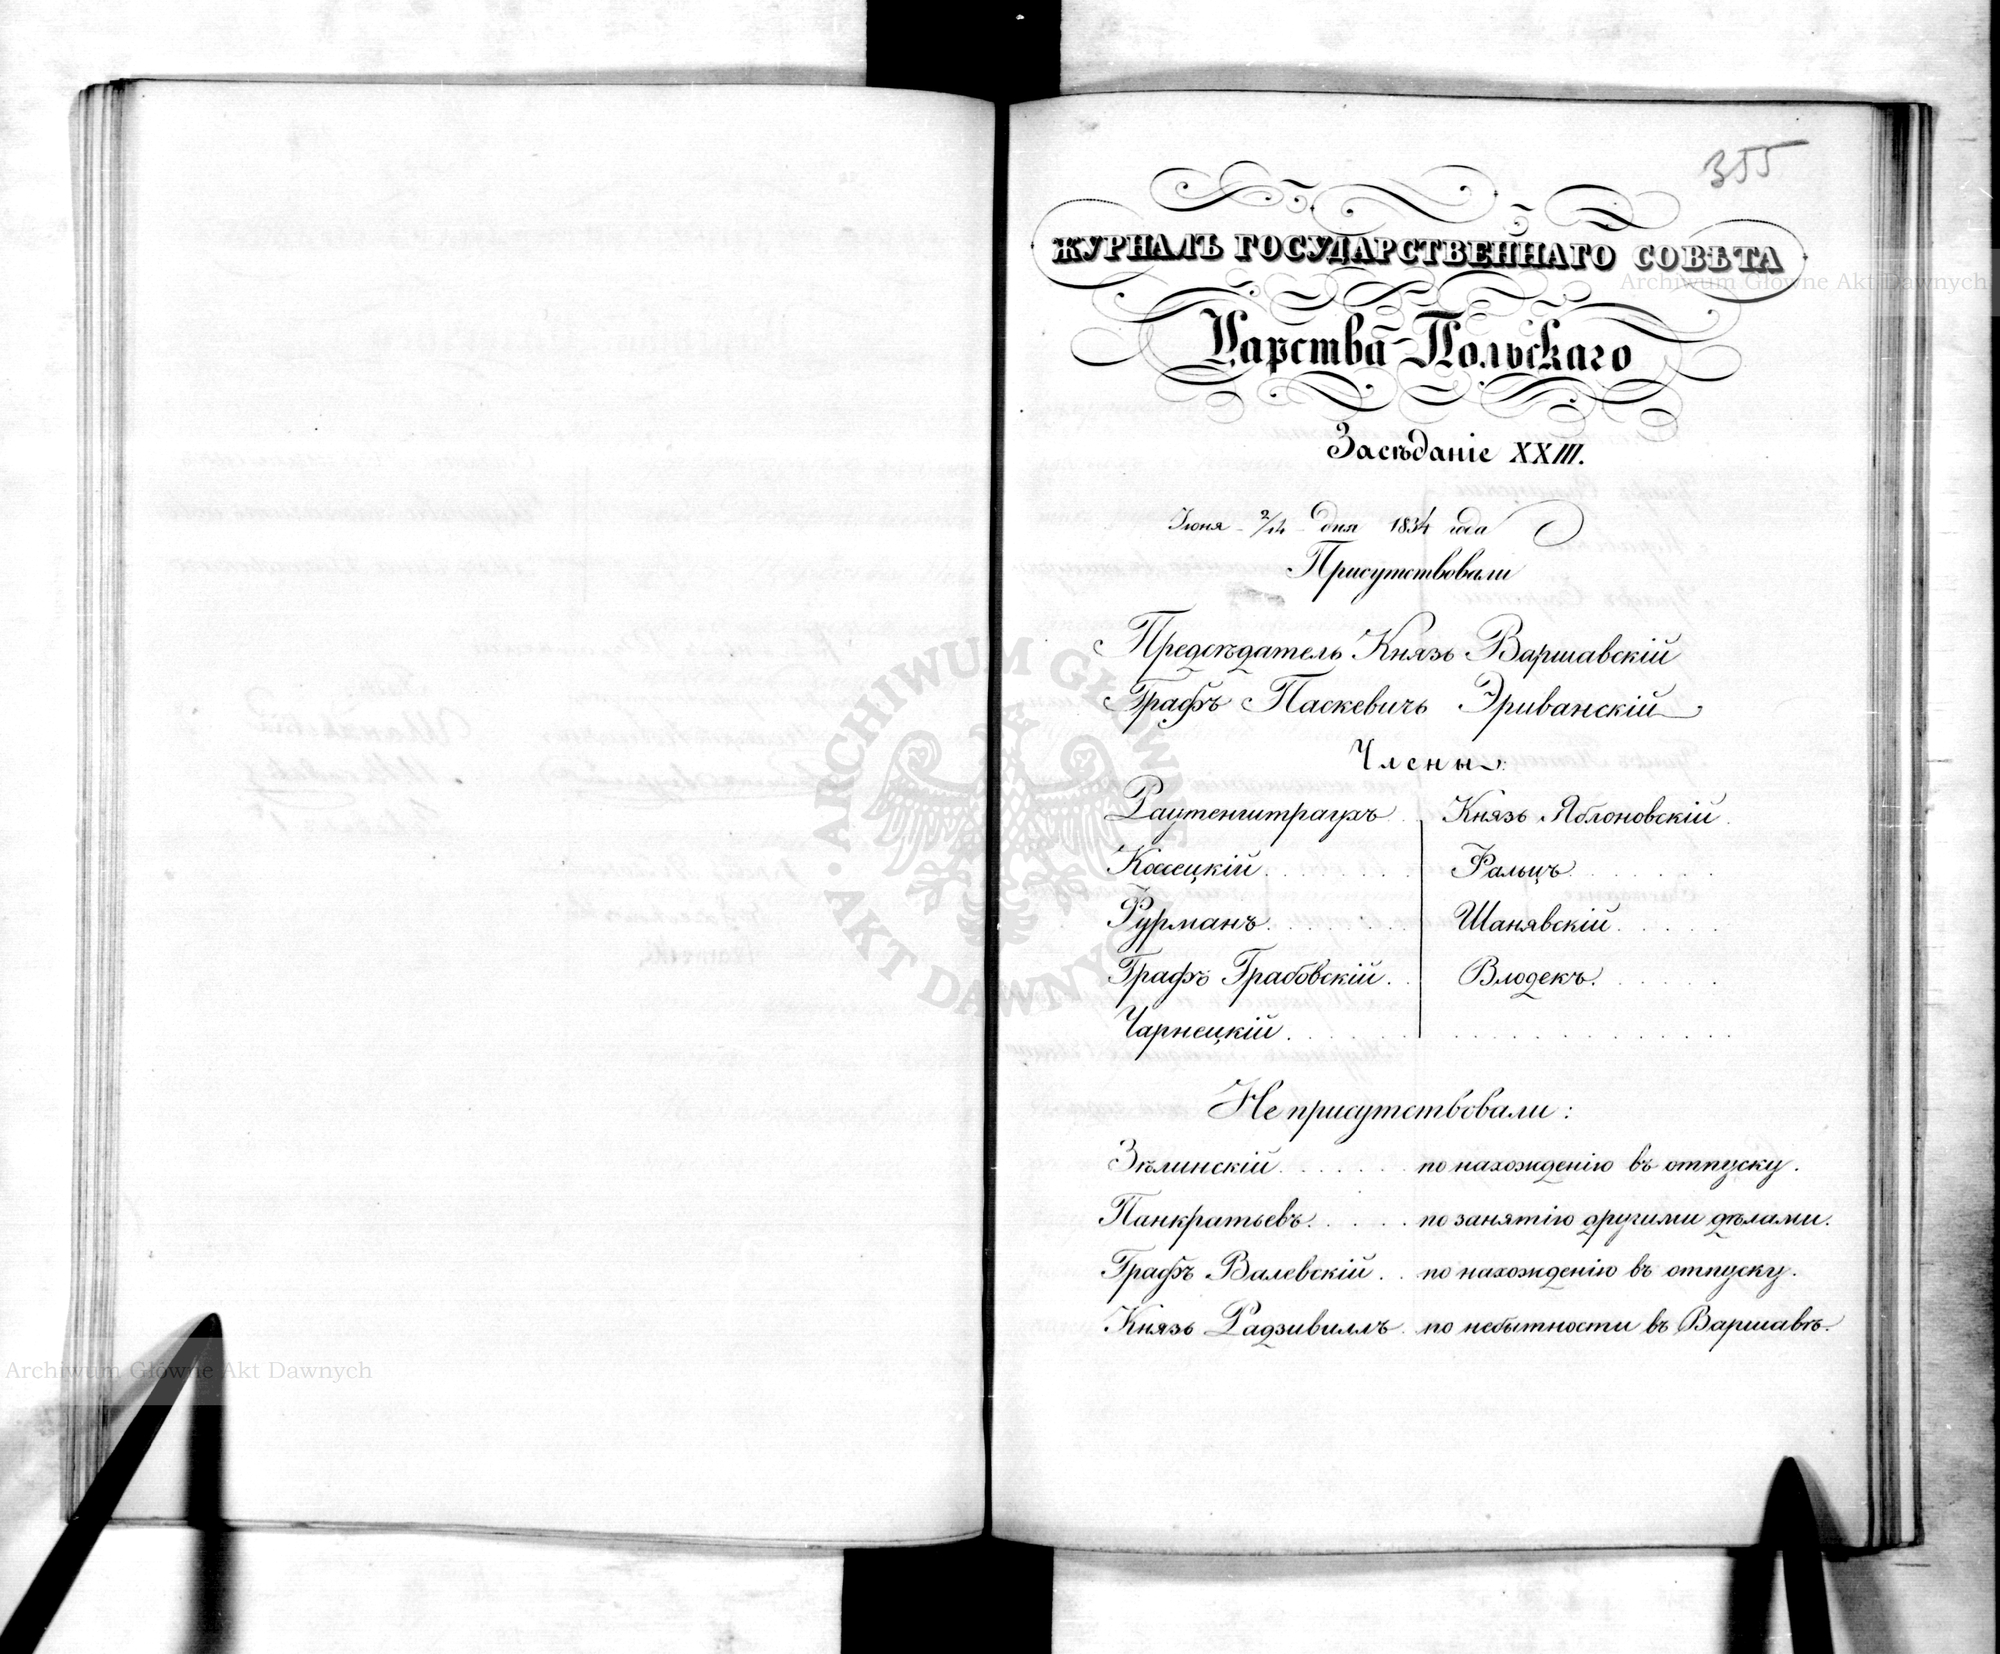 355
ЖУРНАЛЪ ГОСУДАРСТВЕННАГО СОВѢТА
Царства Польскаго
Засѣданіе XXIII.
Іюня 2/14 дня 1834 года
Присутствовали
Предсѣдатель Князь Варшавскій
Графъ Паскевичъ Эриванскій
Члены:
Раутенштраухъ Князь Яблоновскій
Коссецкій Фальцъ
Фурманъ Шанявскій
Графъ Грабовскій Влодекъ.
Чарнецкій
Не присутствовали:
Зѣлинскій по нахожденію въ отпуску.
Панкратьевъ по занятію другими дѣлами.
Графъ Валевскій по нахожденію въ отпуску.
Князь Радзивиллъ по небытности въ Варшавѣ.
ARCHIWUM GŁÓWNE AKT DAWNYCH
Archiwum Główne Akt Dawnych
Archiwum Główne Akt Dawnych